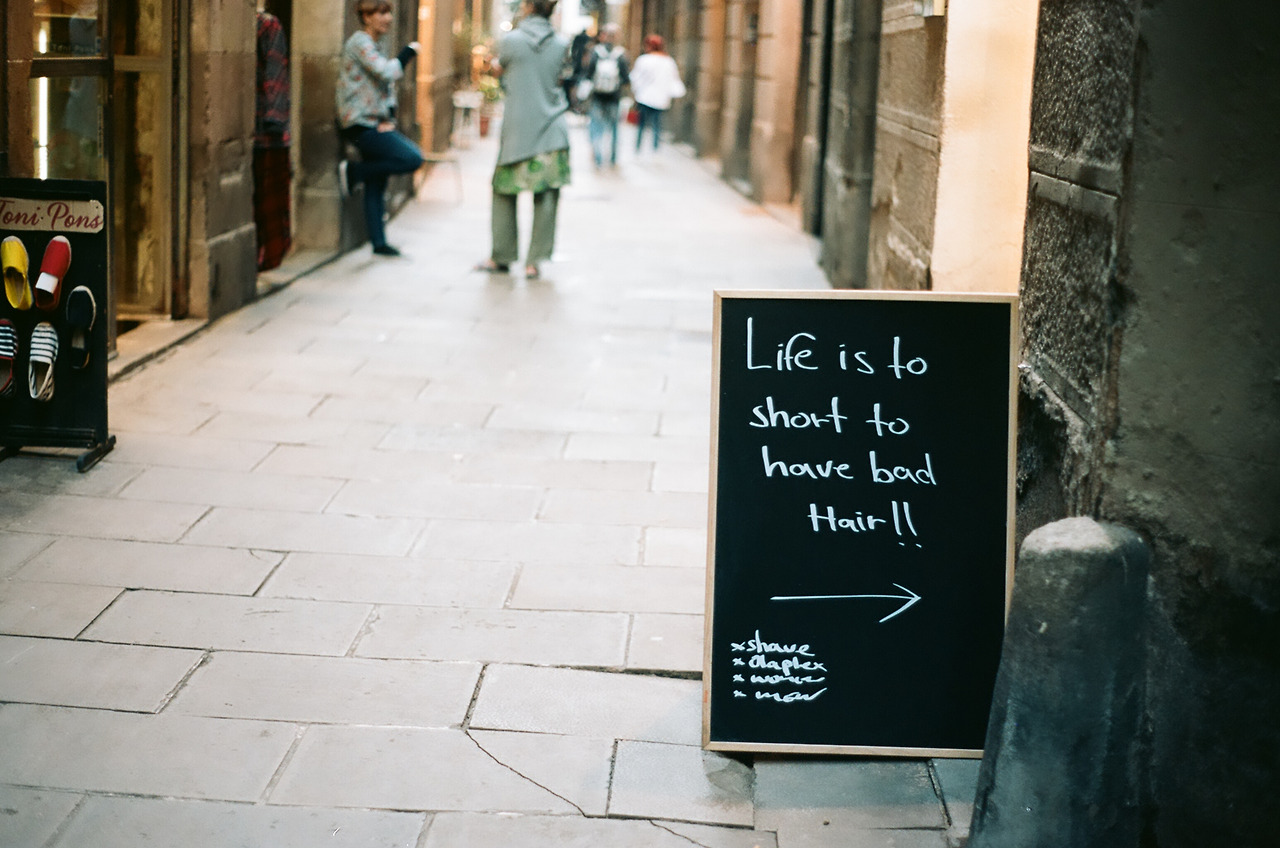 Toni Pons
Life is to
short to
have bad
Hair!!
* shave
* Olaplex
* women
* men